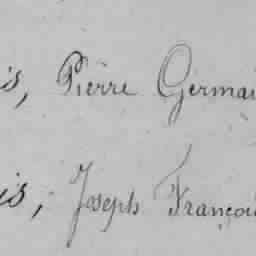 is, Pierre Germai
is, Joseph Françoi